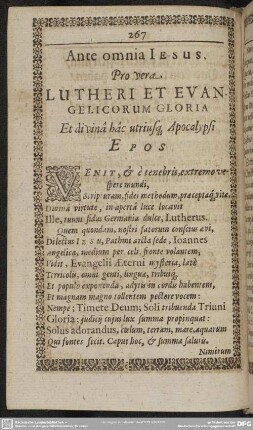 267
Ante omnia IESUS.
Pro vera
LUTHERI ET EVAN-
GELICORUM GLORIA
Et divinâ hâc utriusq́, Apocalypsi
EPOS
VENIT, & è tenebris, extremo ve-
spere mundi,
Scripturam, fidei methodum, præceptaq́, vitæ,
Divinâ virtute, in apertâ luce locavit
Ille, tuum sidus Germania dulce, Lutherus.
Quem quondam, nostri fatorum conscius ævi,
Dilectus IESU, Pathmi arctâ sede, Ioannes
Angelicâ, medium per cœli, fronte volantem,
Vidit, Evangelii Æterni mysteria, latè
Terricolis, omni genti, linguæ, tribuiq́,
Et populo exponenda, adytis in cordis habentem,
Et magnam magno tollentem pectore vocem:
Nempè; Timete Deum; Soli tribuenda Triuni
Gloria: judicij cujus lux summa propinquat:
Solus adorandus, cœlum, terram, mare, aquarum
Qui fontes fecit. Caput hoc, & summa salutis.
Nimirum